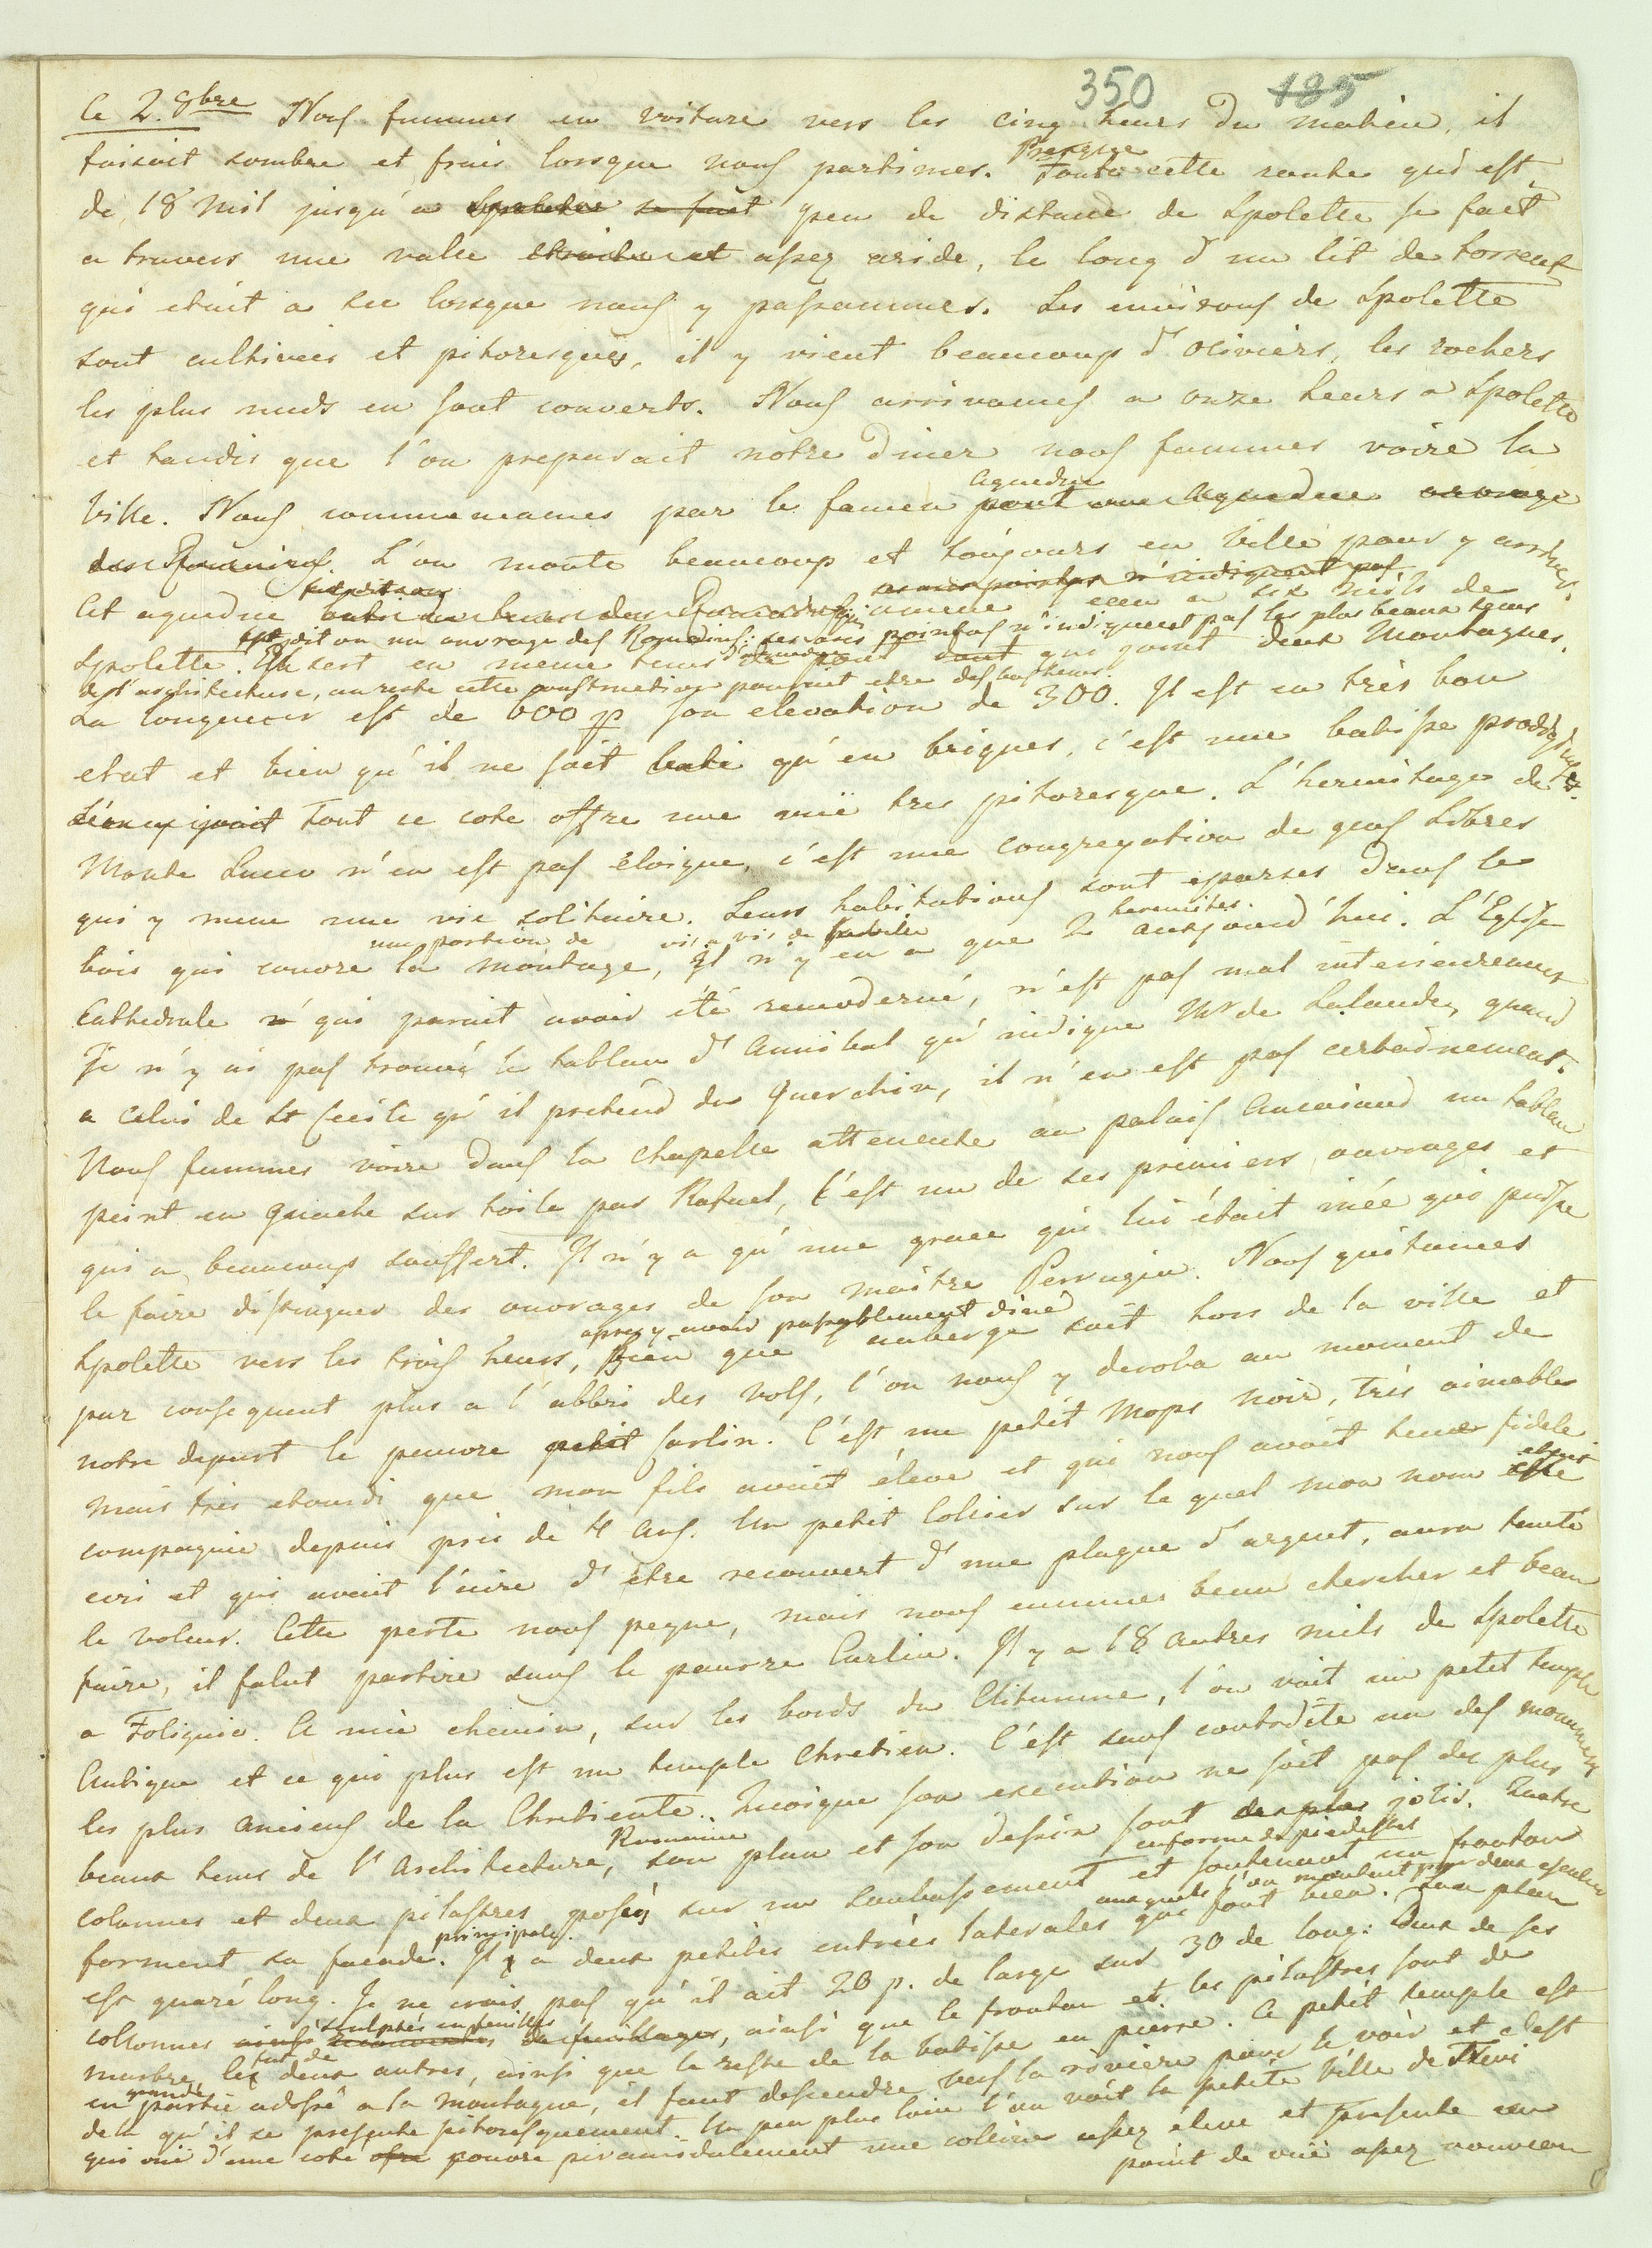 350 185
le 2. 8bre Nous fummes en voiture vers les cinq heurs du matin, il
faisait sombre et frais lorsque nous partimes. Presque Toute cette route qui est
de 18 mil jusqu'a Spolette se fait peu de distance de Spolette se fait
a travers une valée etroite et assez aride, le long d'un lit de torrent
qui etait a sec lorsque nous y passammes. Les environs de Spolette
sont cultivées et pitoresques, il y vient beaucoup d'oliviers, les rochers
les plus nuds en sont couverts. Nous arrivames a onze heurs a Spolette
et tandis que l'on preparait notre diner nous fummes voire la
Ville. Nous commencames par le fameu aqueduc pont ou aqueduc ouvrage
des Romains. L'on monte beaucoup et toujours en Ville pour y arriver.
Cet aqueduc amene l'eau a six mils de
ses arcs pointus n'indiquent pas
Spolette. est dit on un ouvrage des Romains: ses arcs pointus n'indiquent pas les plus beaux tems
Il sert en meme tems d'aqueduc de pont qui joint deux Montagnes.
de l'architecture, au reste cette construction pourrait etre des
La longueur est de 600 p son elevation de 300. Il est en très bon
etat et bien qu'il ne soit bati qu'en briques, c'est une batisse prodigieuse.
Tout ce coté offre une vuë tres pitoresque. L'hermitage de
Monte Lucco n'en est pas éloigné, c'est une congregation de gens Libres
qui y mene une vie solitaire. Leurs habitations sont eparses dans le
bois qui couvre une portion de la montage, vis a vis de Il n'y en a que 2 hermites aujourd'hui. L'Eglise
Cathedrale qui parait avoir été remoderné, n'est pas mal interieurement
Je n'y ai pas trouvé le tableau d'Annibal qu'indique Mr de Lalande, quand
a celui de St Cecile qu'il pretend du Guerchin, il n'en est pas certainement.
Nous fummes voire dans la chapelle attenente au palais Ancaiani un tableau
peint en Guache sur toile par Rafael, c'est un de ses premiers ouvrages et
qui a beaucoup souffert. Il n'y a qu'une grace qui lui était inée qui puisse
le faire distinguer des ouvrages de son maitre Perrugin. Nous quittames
Spolette vers les trois heurs, apres y avoir passablement diné Bien que l'auberge soit hors de la ville et
par consequent plus a l'abbri des vols, l'on nous y deroba au moment de
notre depart le pauvre petit Carlin. C'est un petit Mops noir, très aimable
mais très etourdi que mon fils avait élevé et qui nous avait tenu fidele
compagnie depuis près de 4 ans. Un petit Collier sur le quel mon nom etait
ecri et qui avait l'aire d'etre recouvert d'une plaque d'argent, aura tenté
le voleur. Cette perte nous peyne, mais nous eummes beau chercher et beau
faire, il falut partire sans le pauvre Carlin. Il y a 18 autres mils de Spolette
a Foligno. A mie chemin, sur les bords du Clitumne, l'on voit un petit temple
Antique et ce qui plus est un temple Chretien. C'est sans contredite un des monumens
les plus anciens de la Chretienté. Quoique son execution ne soit pas des plus
beaux tems de l'Architecture Romaine, son plan et son dessin sont des plus jolis. Quatre
colonnes et deux pilastres posés sur un soubassement en forme de piedestal et soutenant un fronton
forment sa facade principale. Il y a deux petites entrées laterales auxquels l'on montait par deux escaliers qui font bien. Son plan
est quaré long. Je ne crois pas qu'il ait 20 p. de large sur 30 de long: Deux de ses
collonnes sculptés en feuilles de feuillages, ainsi que le fronton et les pilastres sont de
marbre, les deux autres, ainsi que le reste de la batisse en pierre. Ce petit temple est
en grande partie adossé a la montagne, il faut descendre vers la riviere pour le voir et c'est
de la qu'il se presente pitoresquement. Un peu plus loin l'on voit la petite Ville de Trevi
qui vuë d'une coté couvre piramidalement une coline assez elevé et presente un
point de vuë assez nouveau